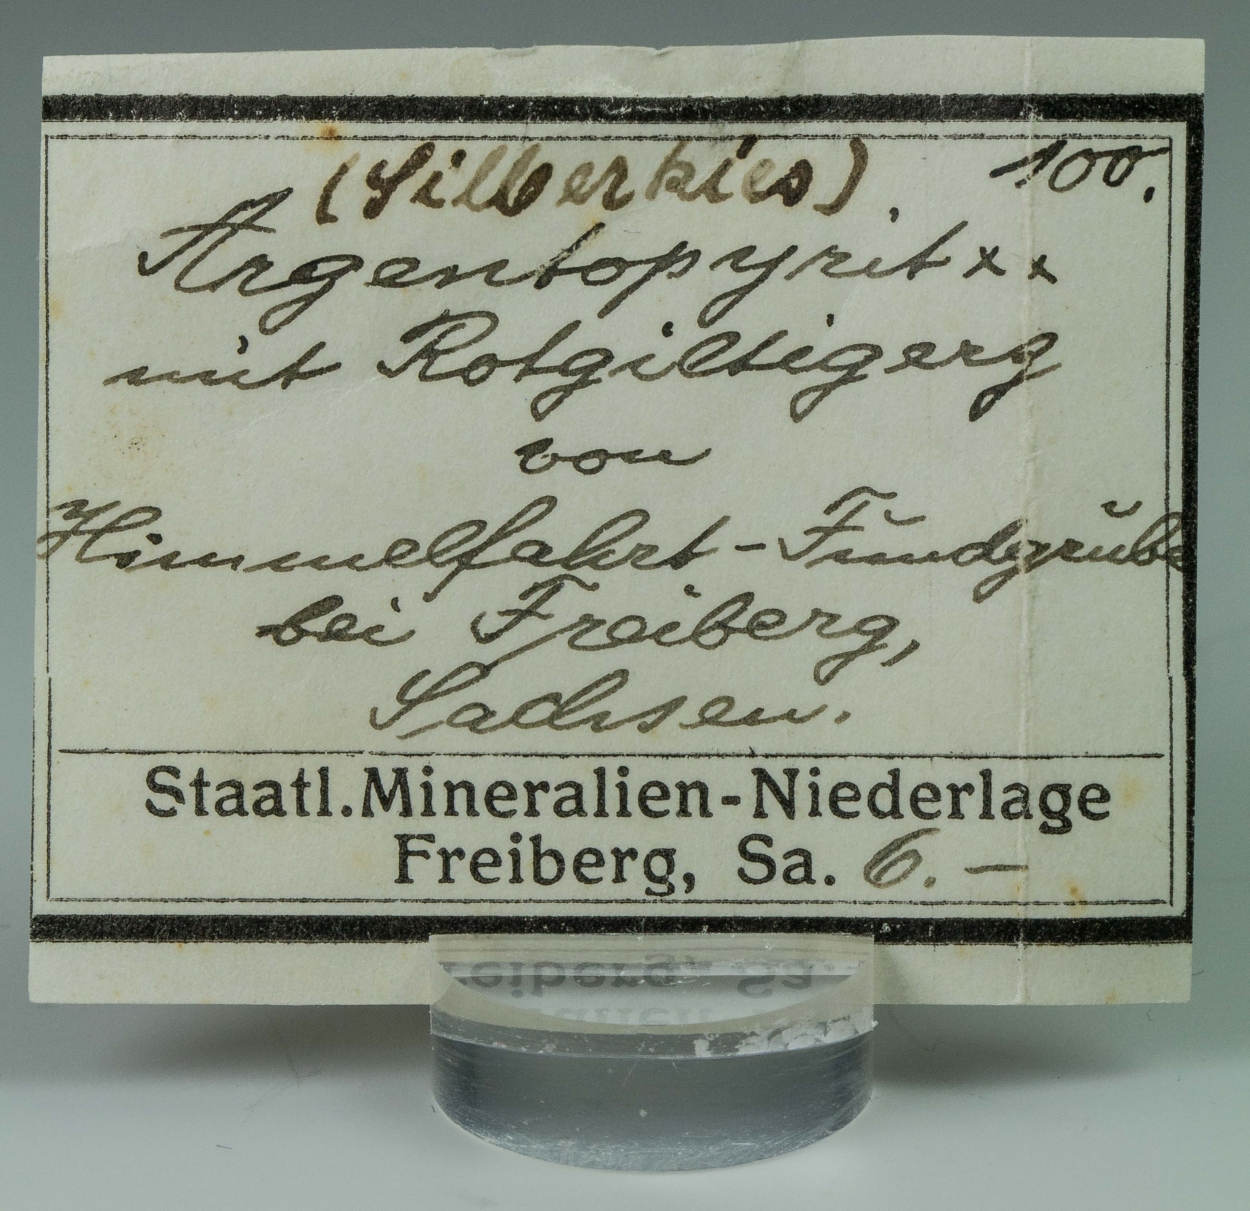 (Silberkies). 100.
Argentopyrit xx
mit Rotgiltigerz
von
Himmelfahrt - Fundgrube
bei Freiberg,
Sachsen.
Staatl. Mineralien-Niederlage
Freiberg, Sa. 6. —